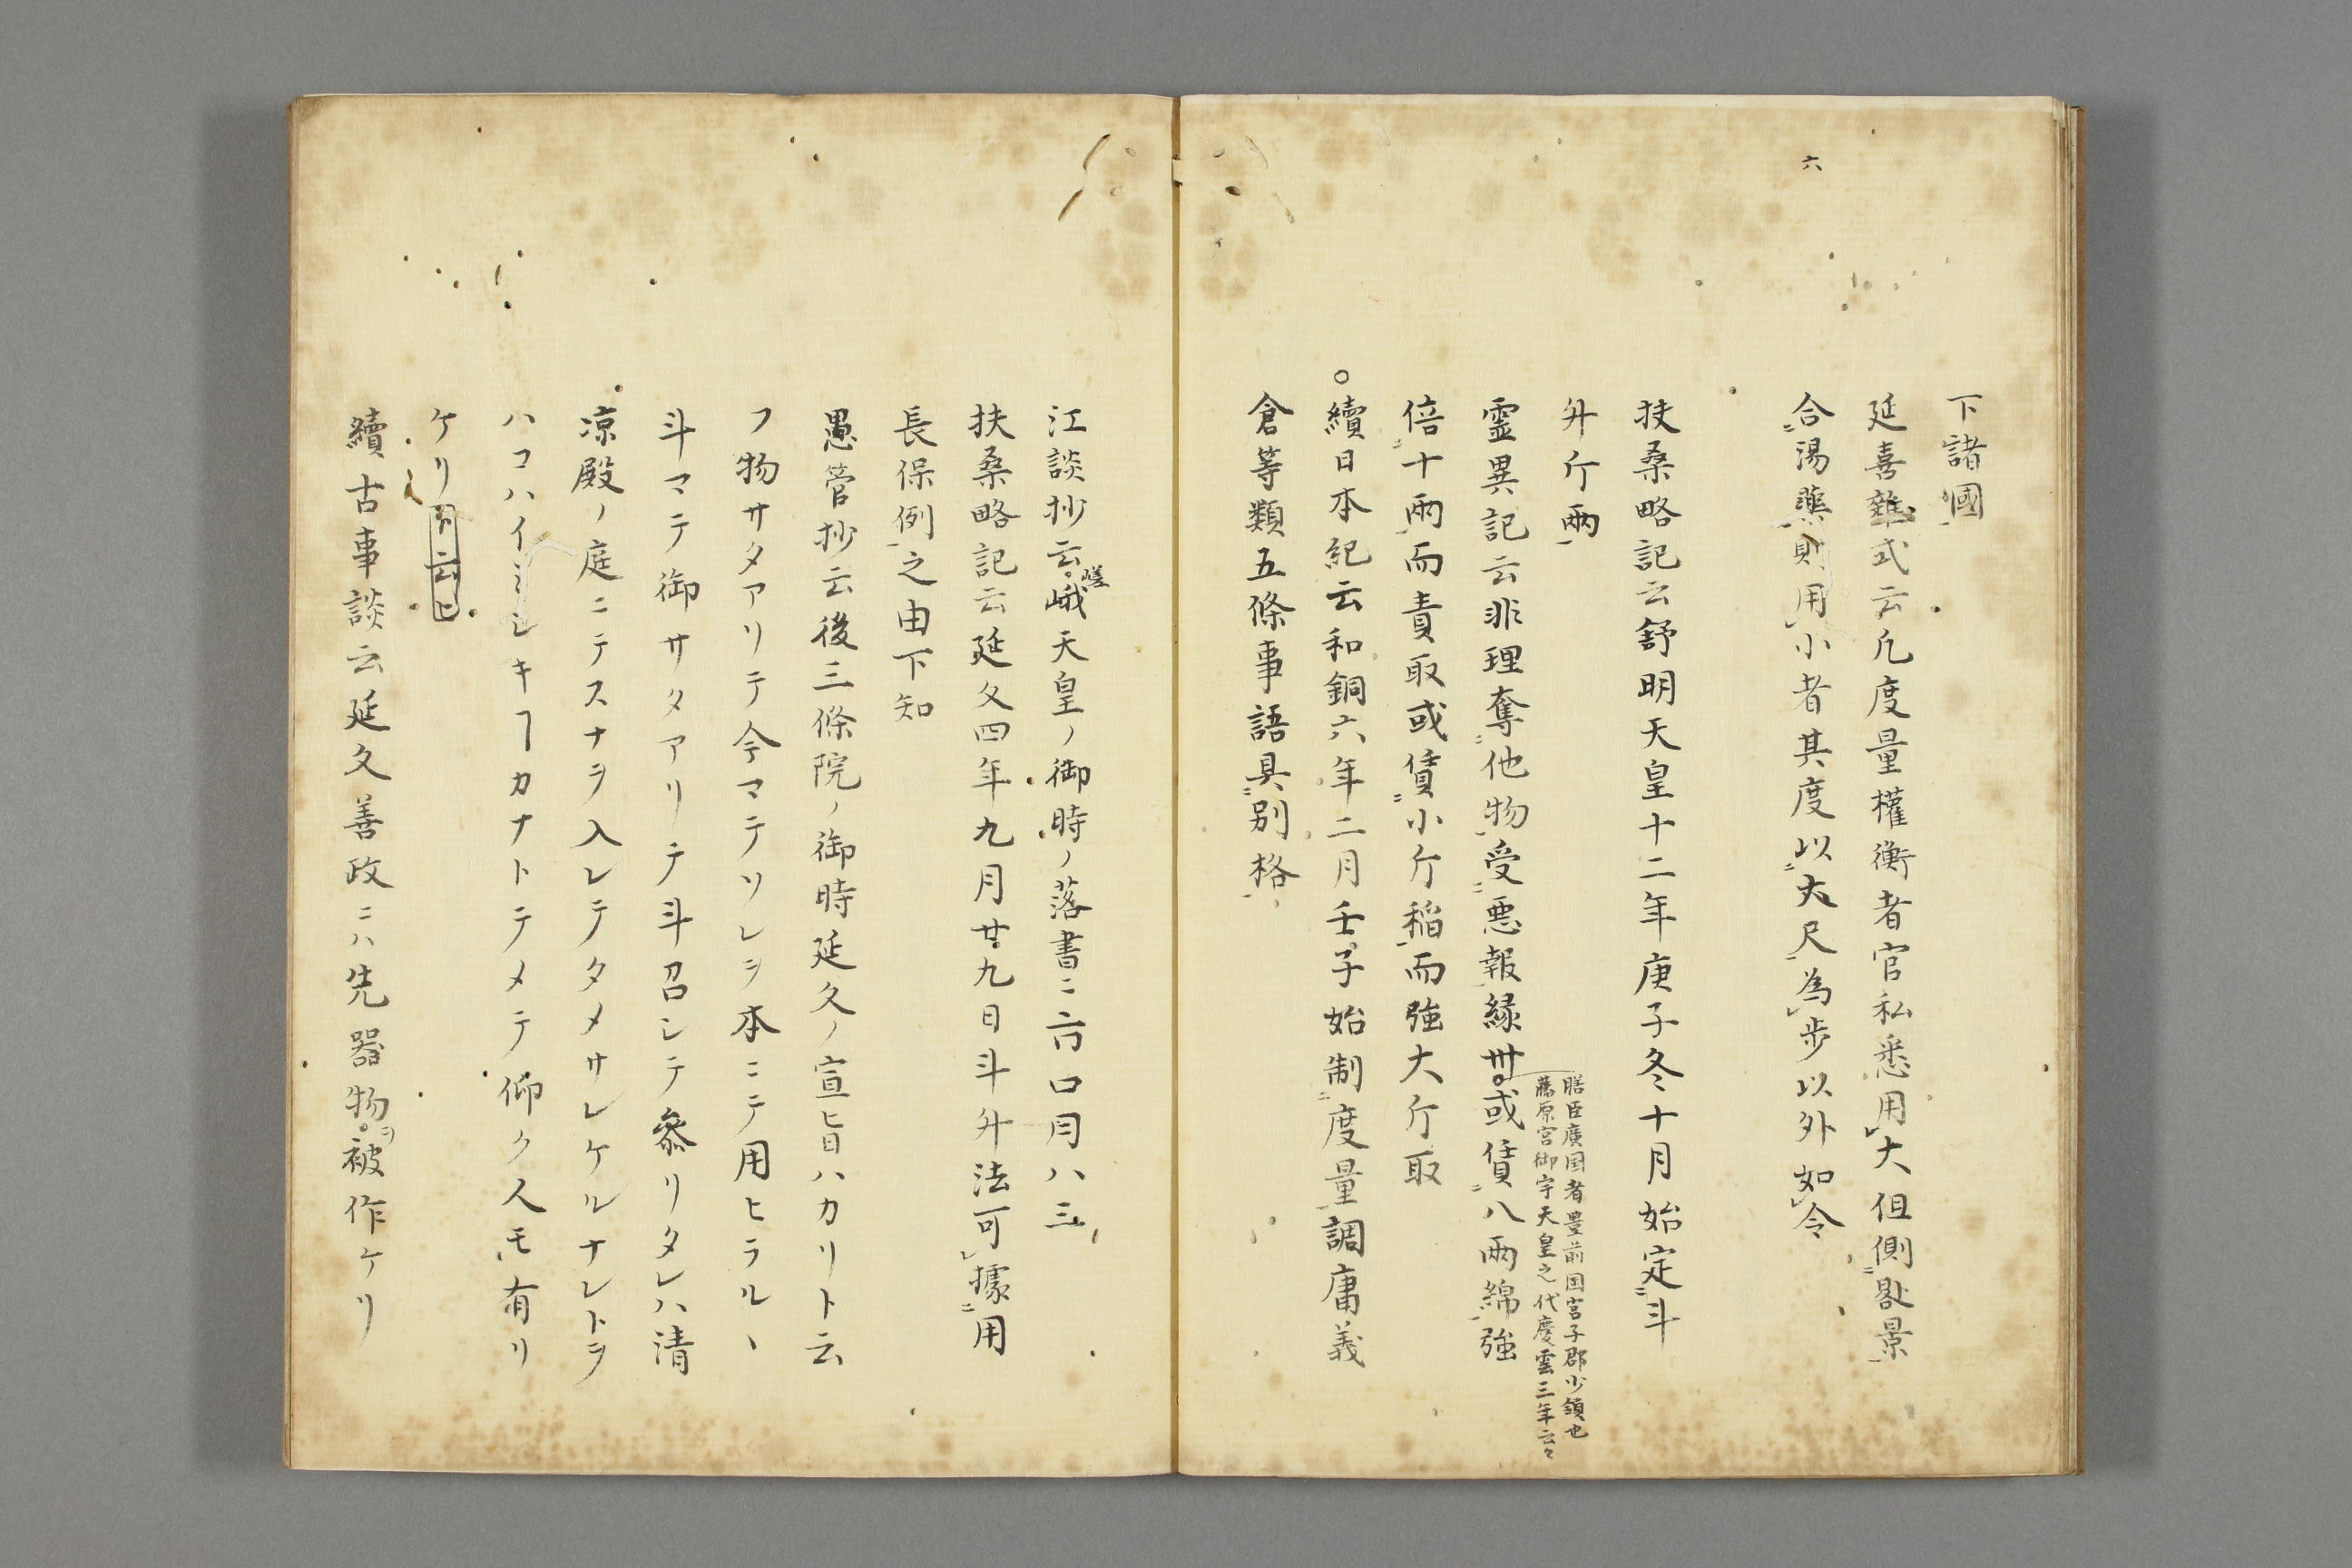 六
下諸國
延喜雜式云凡度量權衡者官私悉用大但側晷景
合湯藥則用小者其度以大尺為步以外如令
扶桑略記云舒明天皇十二年庚子冬十月始定斗
升斤兩
靈異記云非理奪他物受惡報縁卅或賃八兩綿強
膳臣廣国者豊前国宮子郡少領也
藤原宮御宇天皇之代慶雲二年云々
倍十兩而責取或賃小斤稲而強大斤取
○續日本紀云和銅六年二月壬子始制度量調庸義
倉等類五條事語具別格
江談抄云嵯峨天皇ノ御時ノ落書ニ
扶桑略記云延久四年九月廿九日斗升法可據用
長保例之由下知
愚管抄云後三條院ノ御時延久ノ宣旨ハカリト云
フ物サタアリテ今マテソレヲ本ニテ用ヒラルヽ
斗マテ御サタアリテ斗召シテ參リタレハ清
凉殿ノ庭ニテスナヲ入レテタメサレケルナレトヲ
ハコハイミシキヿカナトテメテ仰ク人モ有リ
ケリト云ヒ
續古事談云延久善政ニハ先器物ヲ被作ケリ